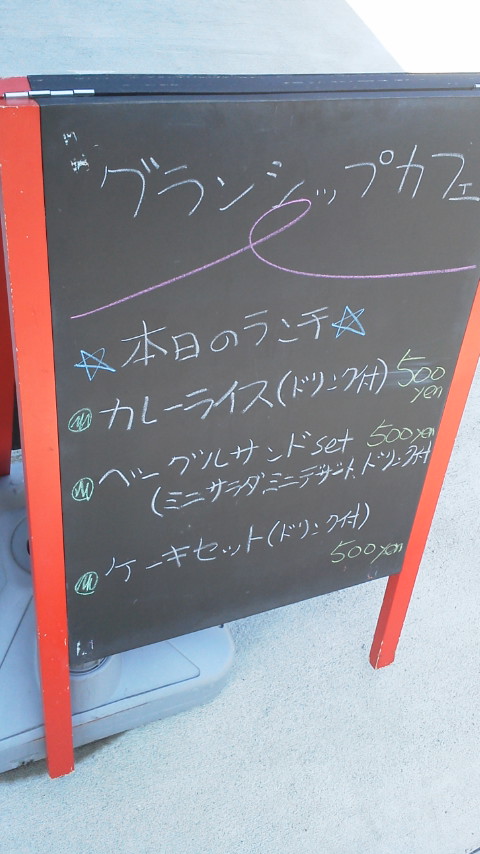 グランシップカフェ
☆本日のランチ☆
カレーライス(ドリンク付) 500 yen
ベーグルサンドset 500yen
(ミニサラダ、ミニデザート、ドリンク付
ケーキセット(ドリンク付)
500yen